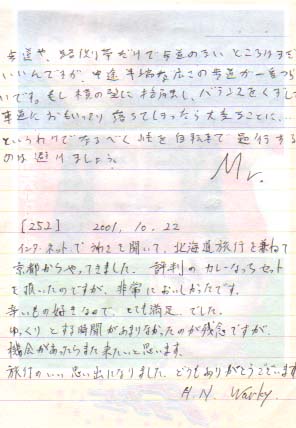 歩道や、路側帯だけで歩道のない ところはまだ
いいんですが、中途半端な広さの歩道が一番つらい
いです。もし横の壁に接触し、バランスをくずして
車道に おもいっきり 落ちてしまったら大変なことに…
というわけでなるべく 道を自転車で 通行する
のは避けましょう。
Mr.
[252] 2001. 10. 22
インターネットで 海さを聞いて、北海道旅行を兼ねて
京都からやってきました。評判の カレーなっちセット
を頂いたのですが、非常に おいしかったです。
辛いもの好きなので、とても満足でした。
ゆっくり とする時間があまりなかったのが残念ですが、
機会があったらまた来たいと思います。
旅行のいい 思い出になりました。どうもありがとうございます
H. N. Warky